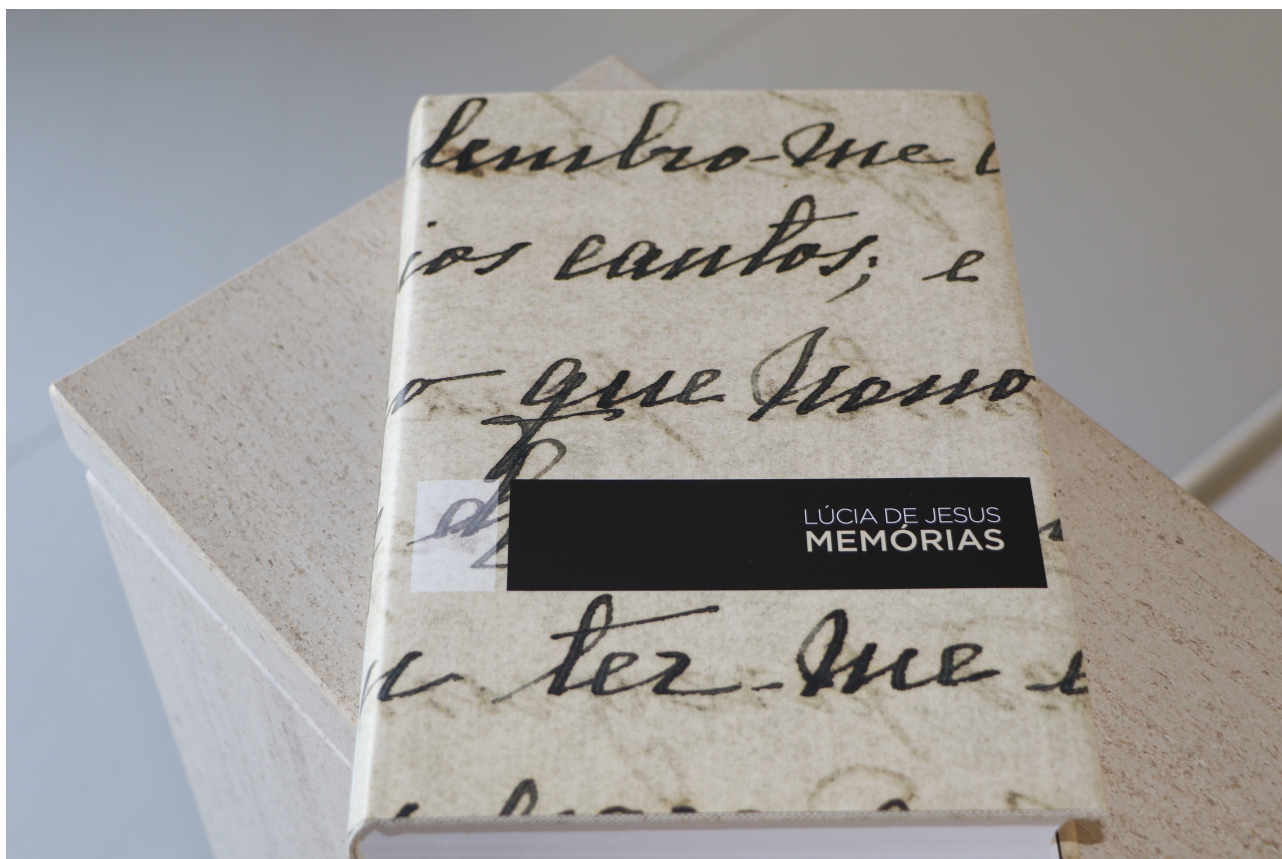 lembro-me
ios cantos; e
o que nono
LÚCIA DE JESUS
MEMÓRIAS
ter-me